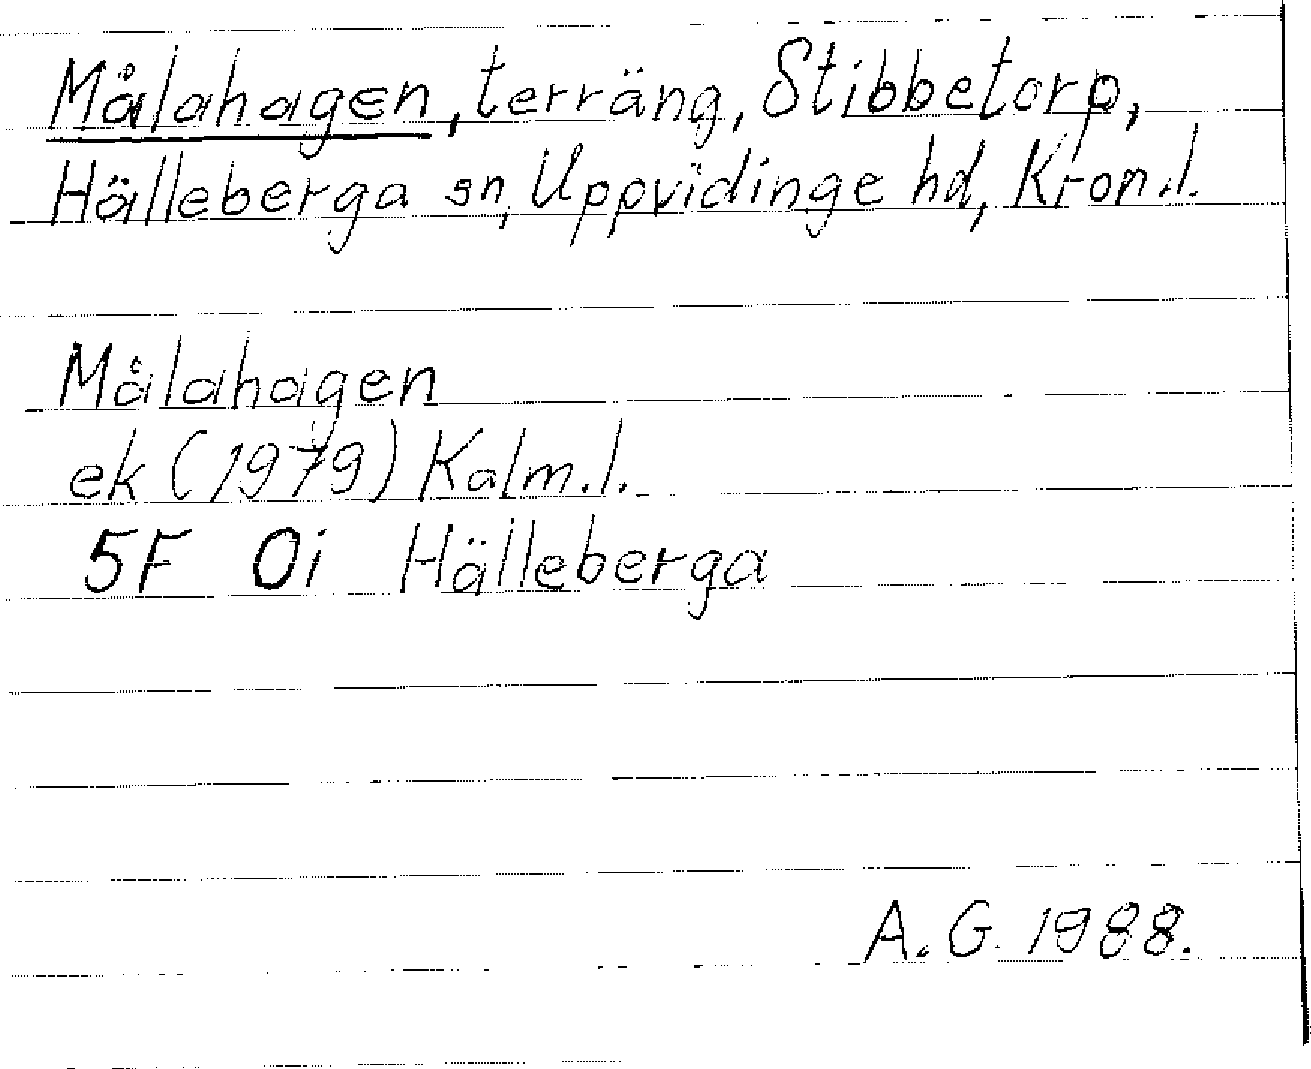 Målahagen, terräng, Stibbetorp,
Hälleberga sn, Uppvidinge hd, Kron.l.
Målahagen
ek (1979) Kalm.l.
5F 0i Hälleberga
A.G. 1988.